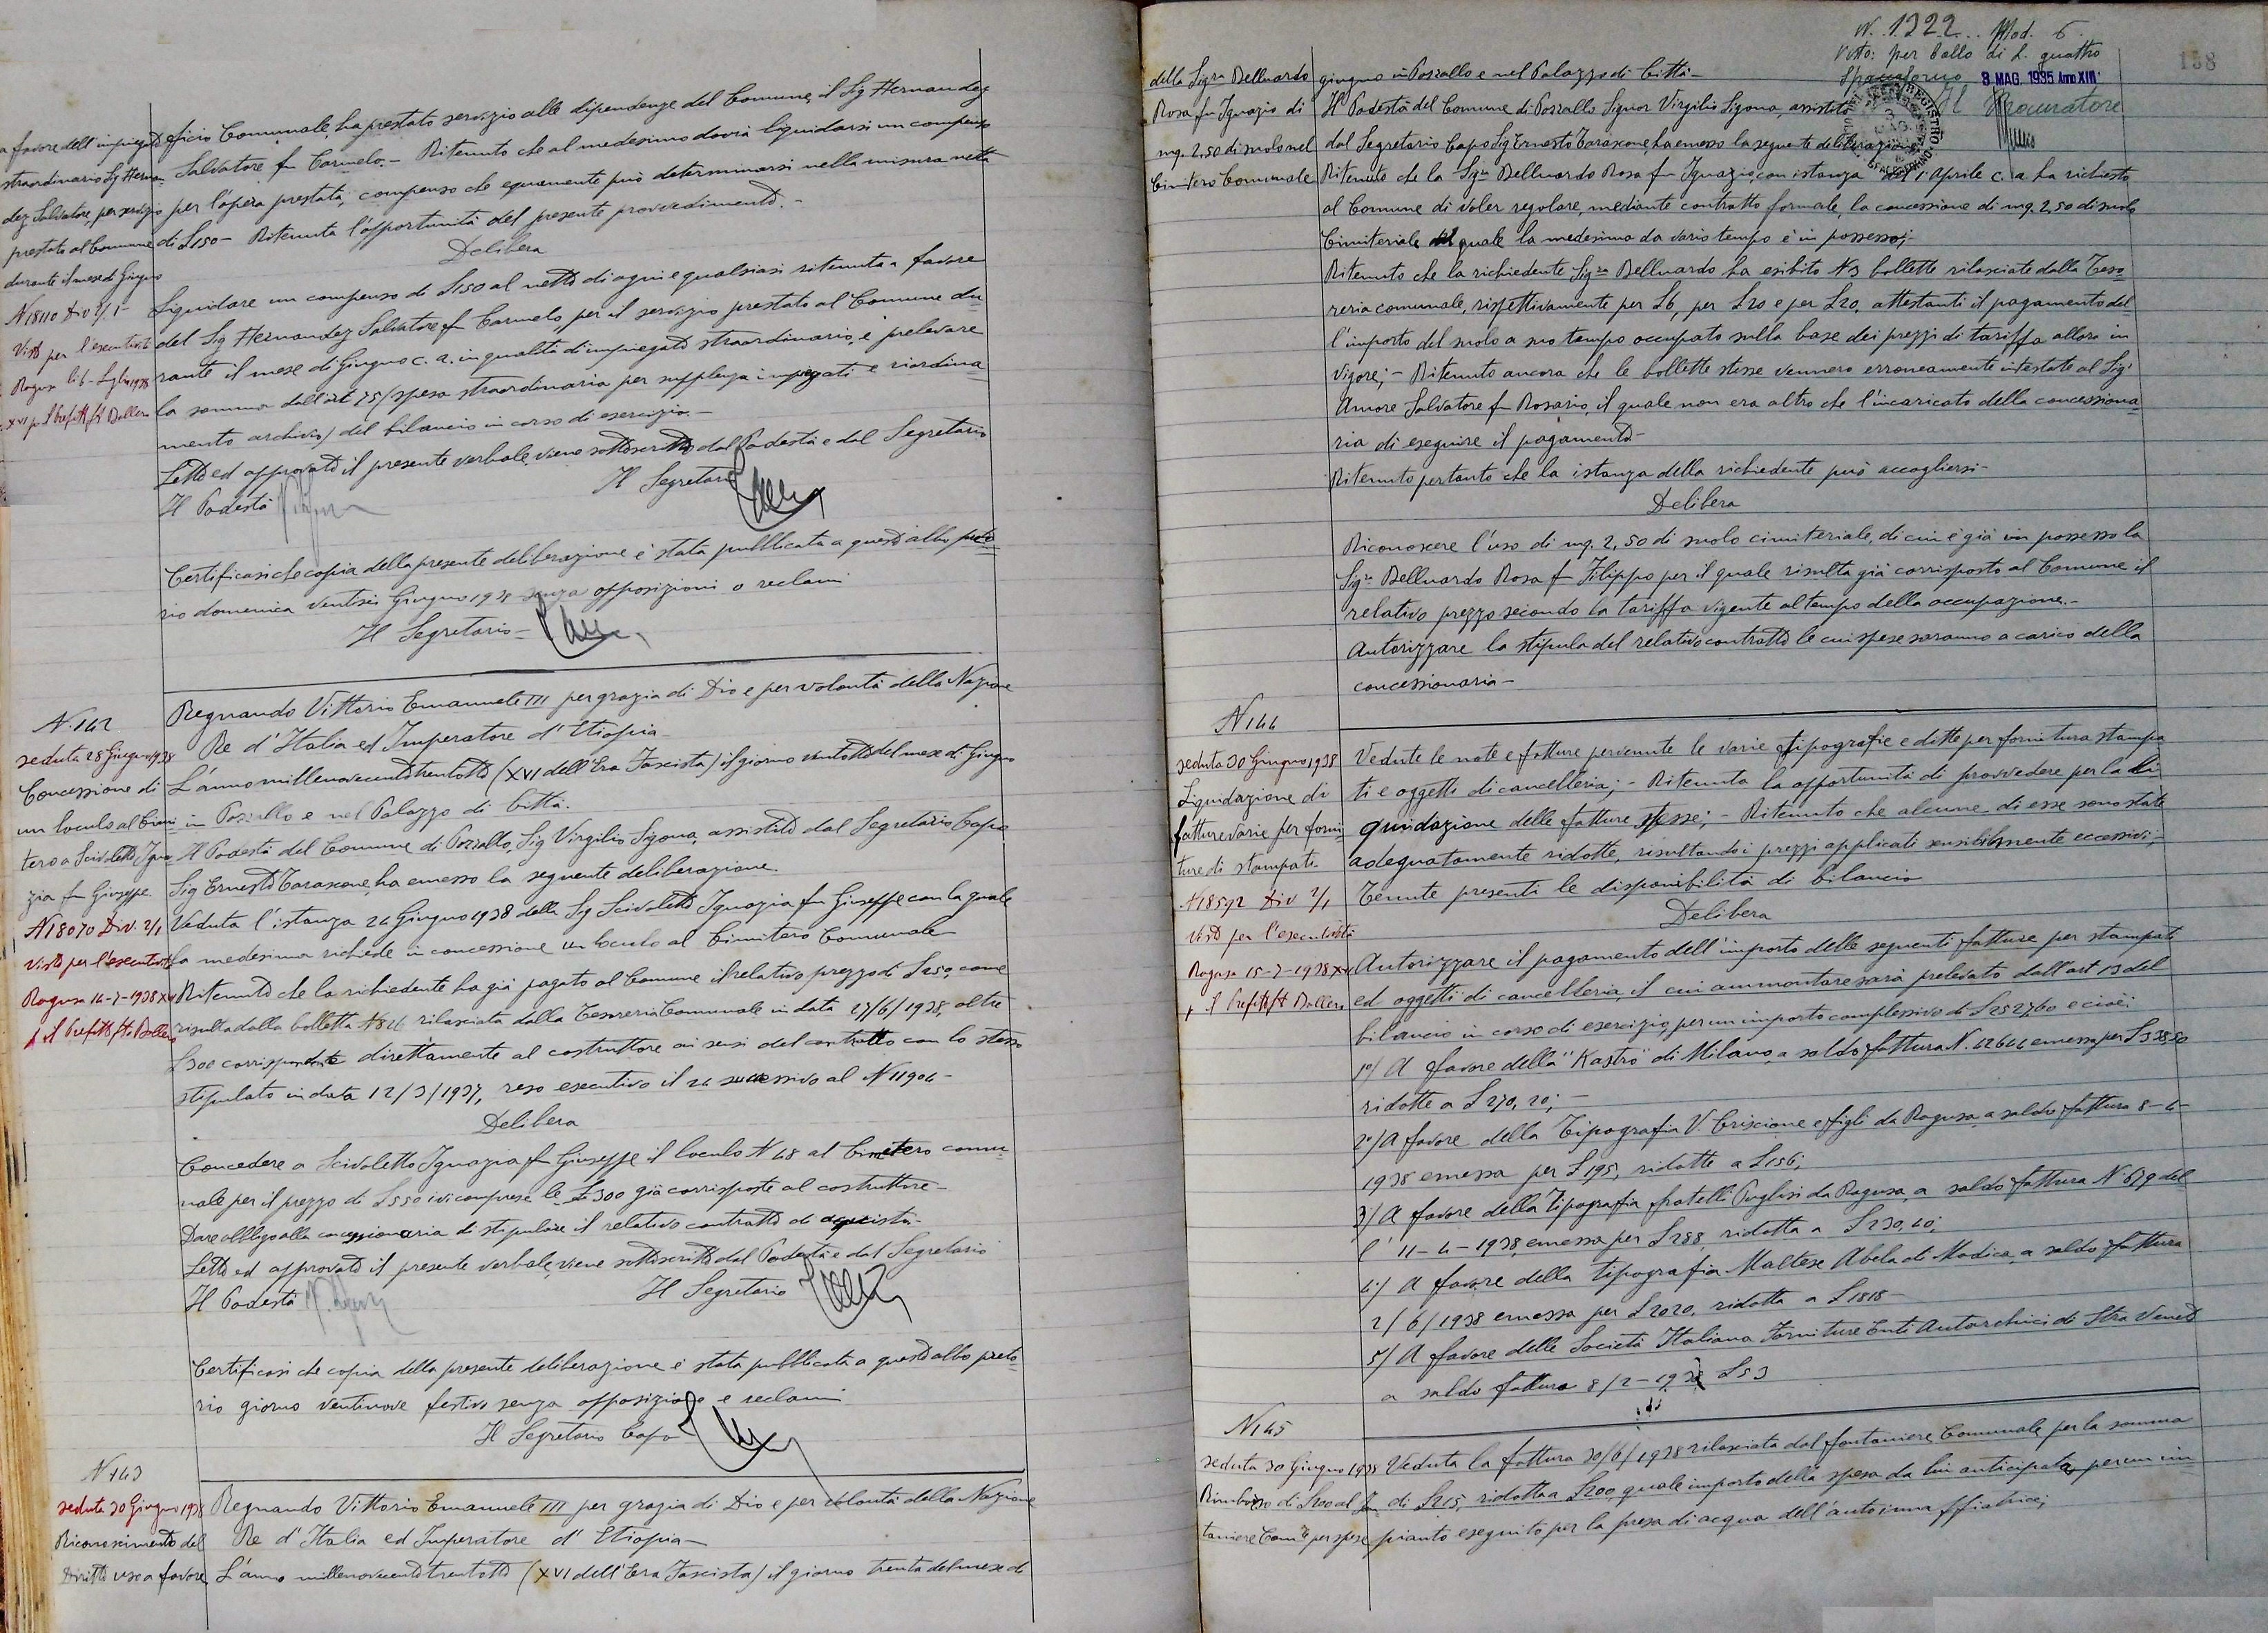 a favore dell'impiegato
straordinario Sg Hernan
dez Salvatore, per servizio
prestato al Comune
durante il mese di Giugno
N 18110 Div 2/1
Visto per l'esecutività
Ragusa li 6 - Luglio 1938
XVI p. Il Prefetto ft Ballero
ficio Comunale, ha prestato servizio alle dipendenze del Comune, il Sg Hernandez
Salvatore fu Carmelo. - Ritenuto che al medesimo dovrà liquidarsi un compenso
per l'opera prestata, compenso che equamente può determinarsi nella misura netta
di £150 - Ritenuta l'opportunità del presente provvedimento. -
Delibera
Liquidare un compenso di £150 al netto di ogni e qualsiasi ritenuta a favore
del Sg Hernandez Salvatore fu Carmelo, per il servizio prestato al Comune du
rante il mese di Giugno c. a. in qualità di impiegato straordinario, e prelevare
la somma dall'art 75 (spesa straordinaria per supplenza impiegati e riordina
mento archivio) del bilancio in corso di esercizio. -
Letto ed approvato il presente verbale, viene sottoscritto dal Podestà e dal Segretario
Il Podestà Il Segretario
Certificasi che copia della presente deliberazione è stata pubblicata a questo albo preto
rio domenica ventisei Giugno 1938 senza opposizioni o reclami
Il Segretario -
N. 142
seduta 28 Giugno 1938
Concessione di
un loculo al Cimi
tero a Scivoletto Igna
zia fu Giuseppe.
N 18070 Div. 2/1
Visto per l'esecutività
Ragusa 14-7-1938 XVI
p il Prefetto fto Ballero
Regnando Vittorio Emanuele III per grazia di Dio e per volontà della Nazione
Re d'Italia ed Imperatore d'Etiopia -
L'anno millenovecentotrentotto (XVI dell'Era Fascista) il giorno ventotto del mese di Giugno
in Pozzallo e nel Palazzo di Città.
Il Podestà del Comune di Pozzallo, Sig Virgilio Sigona, assistito dal Segretario Capo
Sig Ernesto Tarascone, ha emesso la seguente deliberazione.
Veduta l'istanza 24 Giugno 1938 della Sg Scivoletto Ignazia fu Giuseppe con la quale
la medesima richiede in concessione un loculo al Cimitero Comunale
Ritenuto che la richiedente ha già pagato al Comune il relativo prezzo di £250, come
risulta dalla bolletta N 826 rilasciata dalla Tesoreria Comunale in data 27/6/1938, oltre
£300 corrispondente direttamente al costruttore ai sensi del contratto con lo stesso
stipulato in data 12/3/1937, reso esecutivo il 24 successivo al N 11904 -
Delibera
Concedere a Scivoletto Ignazia fu Giuseppe il loculo N 48 al Cimitero comu
nale per il prezzo di £550 ivi comprese le £300 già corrisposte al costruttore -
Dare obbligo alla concessionaria di stipulare il relativo contratto di acquisto -
Letto ed approvato il presente verbale, viene sottoscritto dal Podestà e dal Segretario
Il Podestà Il Segretario
Certificasi che copia della presente deliberazione è stata pubblicata a questo albo preto
rio giorno ventinove festivo senza opposizione e reclami
Il Segretario Capo
N 143
seduta 30 Giugno 1938
Riconoscimento del
Diritto uso a favore
Regnando Vittorio Emanuele III per grazia di Dio e per volontà della Nazione
Re d'Italia ed Imperatore d'Etiopia -
L'anno millenovecentotrentotto (XVI dell'Era Fascista) il giorno trenta del mese di
N. 1322 . . Mod. 6
Visto: per bollo di L. quattro
Spaccaforno 3 MAG. 1935 Anno XIII
Il Procuratore
138
della Sigra Belluardo
Rosa fu Ignazio di
mq. 2,50 di suolo nel
Cimitero Comunale
giugno in Pozzallo e nel Palazzo di Città -
Il Podestà del Comune di Pozzallo Signor Virgilio Sigona, assistito
dal Segretario Capo Sig Ernesto Tarascone, ha emesso la seguente deliberazione
Ritenuto che la Sigra Belluardo Rosa fu Ignazio, con istanza 1° Aprile c. a ha richiesto
al Comune di voler regolare, mediante contratto formale, la concessione di mq. 2,50 di suolo
Cimiteriale del quale la medesima da vario tempo è in possesso; -
Ritenuto che la richiedente Sigra Belluardo ha esibito N 3 bollette rilasciate dalla Teso
reria comunale, rispettivamente per £6, per £20 e per £20, attestanti il pagamento del
l'importo del suolo a suo tempo occupato sulla base dei prezzi di tariffa allora in
vigore; - Ritenuto ancora che le bollette stesse vennero erroneamente intestate al Sig'
Amore Salvatore fu Rosario, il quale non era altro che l'incaricato della concessiona
ria di eseguire il pagamento -
Ritenuto pertanto che la istanza della richiedente può accogliersi -
Delibera
Riconoscere l'uso di mq. 2,50 di suolo cimiteriale, di cui è già in possesso la
Sgra Belluardo Rosa fu Filippo per il quale risulta già corrisposto al Comune il
relativo prezzo secondo la tariffa vigente al tempo della occupazione. -
Autorizzare la stipula del relativo contratto le cui spese saranno a carico della
concessionaria -
N 144
seduta 30 Giugno 1938
Liquidazione di
fatture varie per forni
ture di stampati
N 18592 Div 2/1
Visto per l'esecutività
Ragusa 15-7-1938 XVI
p il Prefetto ft Ballero
Vedute le note e fatture pervenute le varie tipografie e ditte per fornitura stampa
ti e oggetti di cancelleria; - Ritenuta la opportunità di provvedere per la li
quidazione delle fatture stesse; - Ritenuto che alcune di esse sono state
adeguatamente ridotte, risultando i prezzi applicati sensibilmente eccessivi; -
Tenute presenti le disponibilità di bilancio
Delibera
Autorizzare il pagamento dell'importo delle seguenti fatture per stampati
ed oggetti di cancelleria, il cui ammontare sarà prelevato dall'art 13 del
bilancio in corso di esercizio, per un importo complessivo di £2527,60 e cioè:
1°/ A favore della "Kastro" di Milano, a saldo fattura N. 42644 emessa per £338,50
ridotte a £270,20; -
2°/ A favore della Tipografia V. Criscione e figli da Ragusa, a saldo fattura 8-4-
1938 emessa per £195, ridotte a £156;
3/ A favore della Tipografia fratelli Puglisi da Ragusa, a saldo fattura N. 679 del
l'11-4-1938, emessa per £288, ridotta a £230,40;
4°/ A favore della tipografia Maltese Abela di Modica, a saldo fattura
2/6/1938 emessa per £2020, ridotta a £1818 -
5/ A favore delle Società Italiana Forniture Enti Autarchici di Stra Veneto
a saldo fattura 8/2-1938 £53
N 145
seduta 30 Giugno 1938
Rimborso di £200 al fon
taniere Comle per spese
Veduta la fattura 30/6/1938 rilasciata dal fontaniere Comunale per la somma
di £215, ridotta a £200, quale importo della spesa da lui anticipata, per un im
pianto eseguito per la presa di acqua dell'auto innaffiatrice;